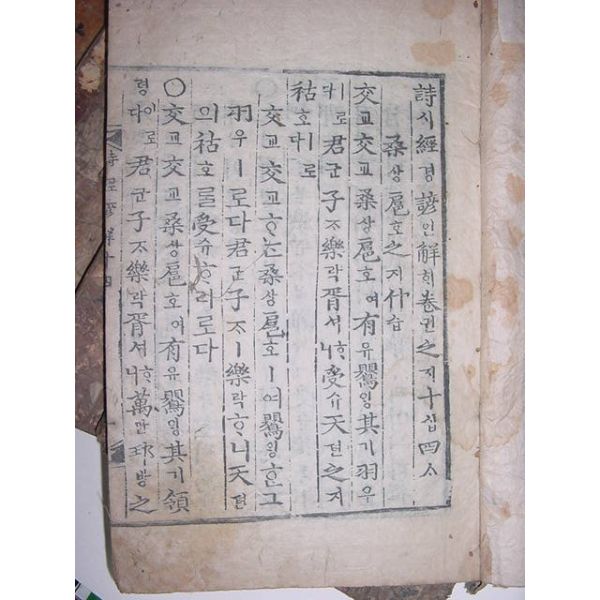 詩시經경諺언解ᄒᆡ卷권之지十십四ᄉᆞ
桑상扈호之지什습
交교交교桑상扈호여有유鶯잉其기羽우
ㅣ로다君군子ᄌᆞ樂락胥셔ᄒᆞ니受슈天텬之지
祜호ㅣ로다
○交교交교ᄒᆞᄂᆞᆫ桑상扈호ㅣ여鶯잉ᄒᆞᆫ그
羽우ㅣ로다君군子ᄌᆞㅣ樂락ᄒᆞ니天텬
의祜호ᄅᆞᆯ受슈ᄒᆞ리로다
○交교交교桑상扈호여有유鶯잉其기領
령이로다君군子ᄌᆞ樂락胥셔ᄒᆞ니萬만邦방之
詩經諺解十四